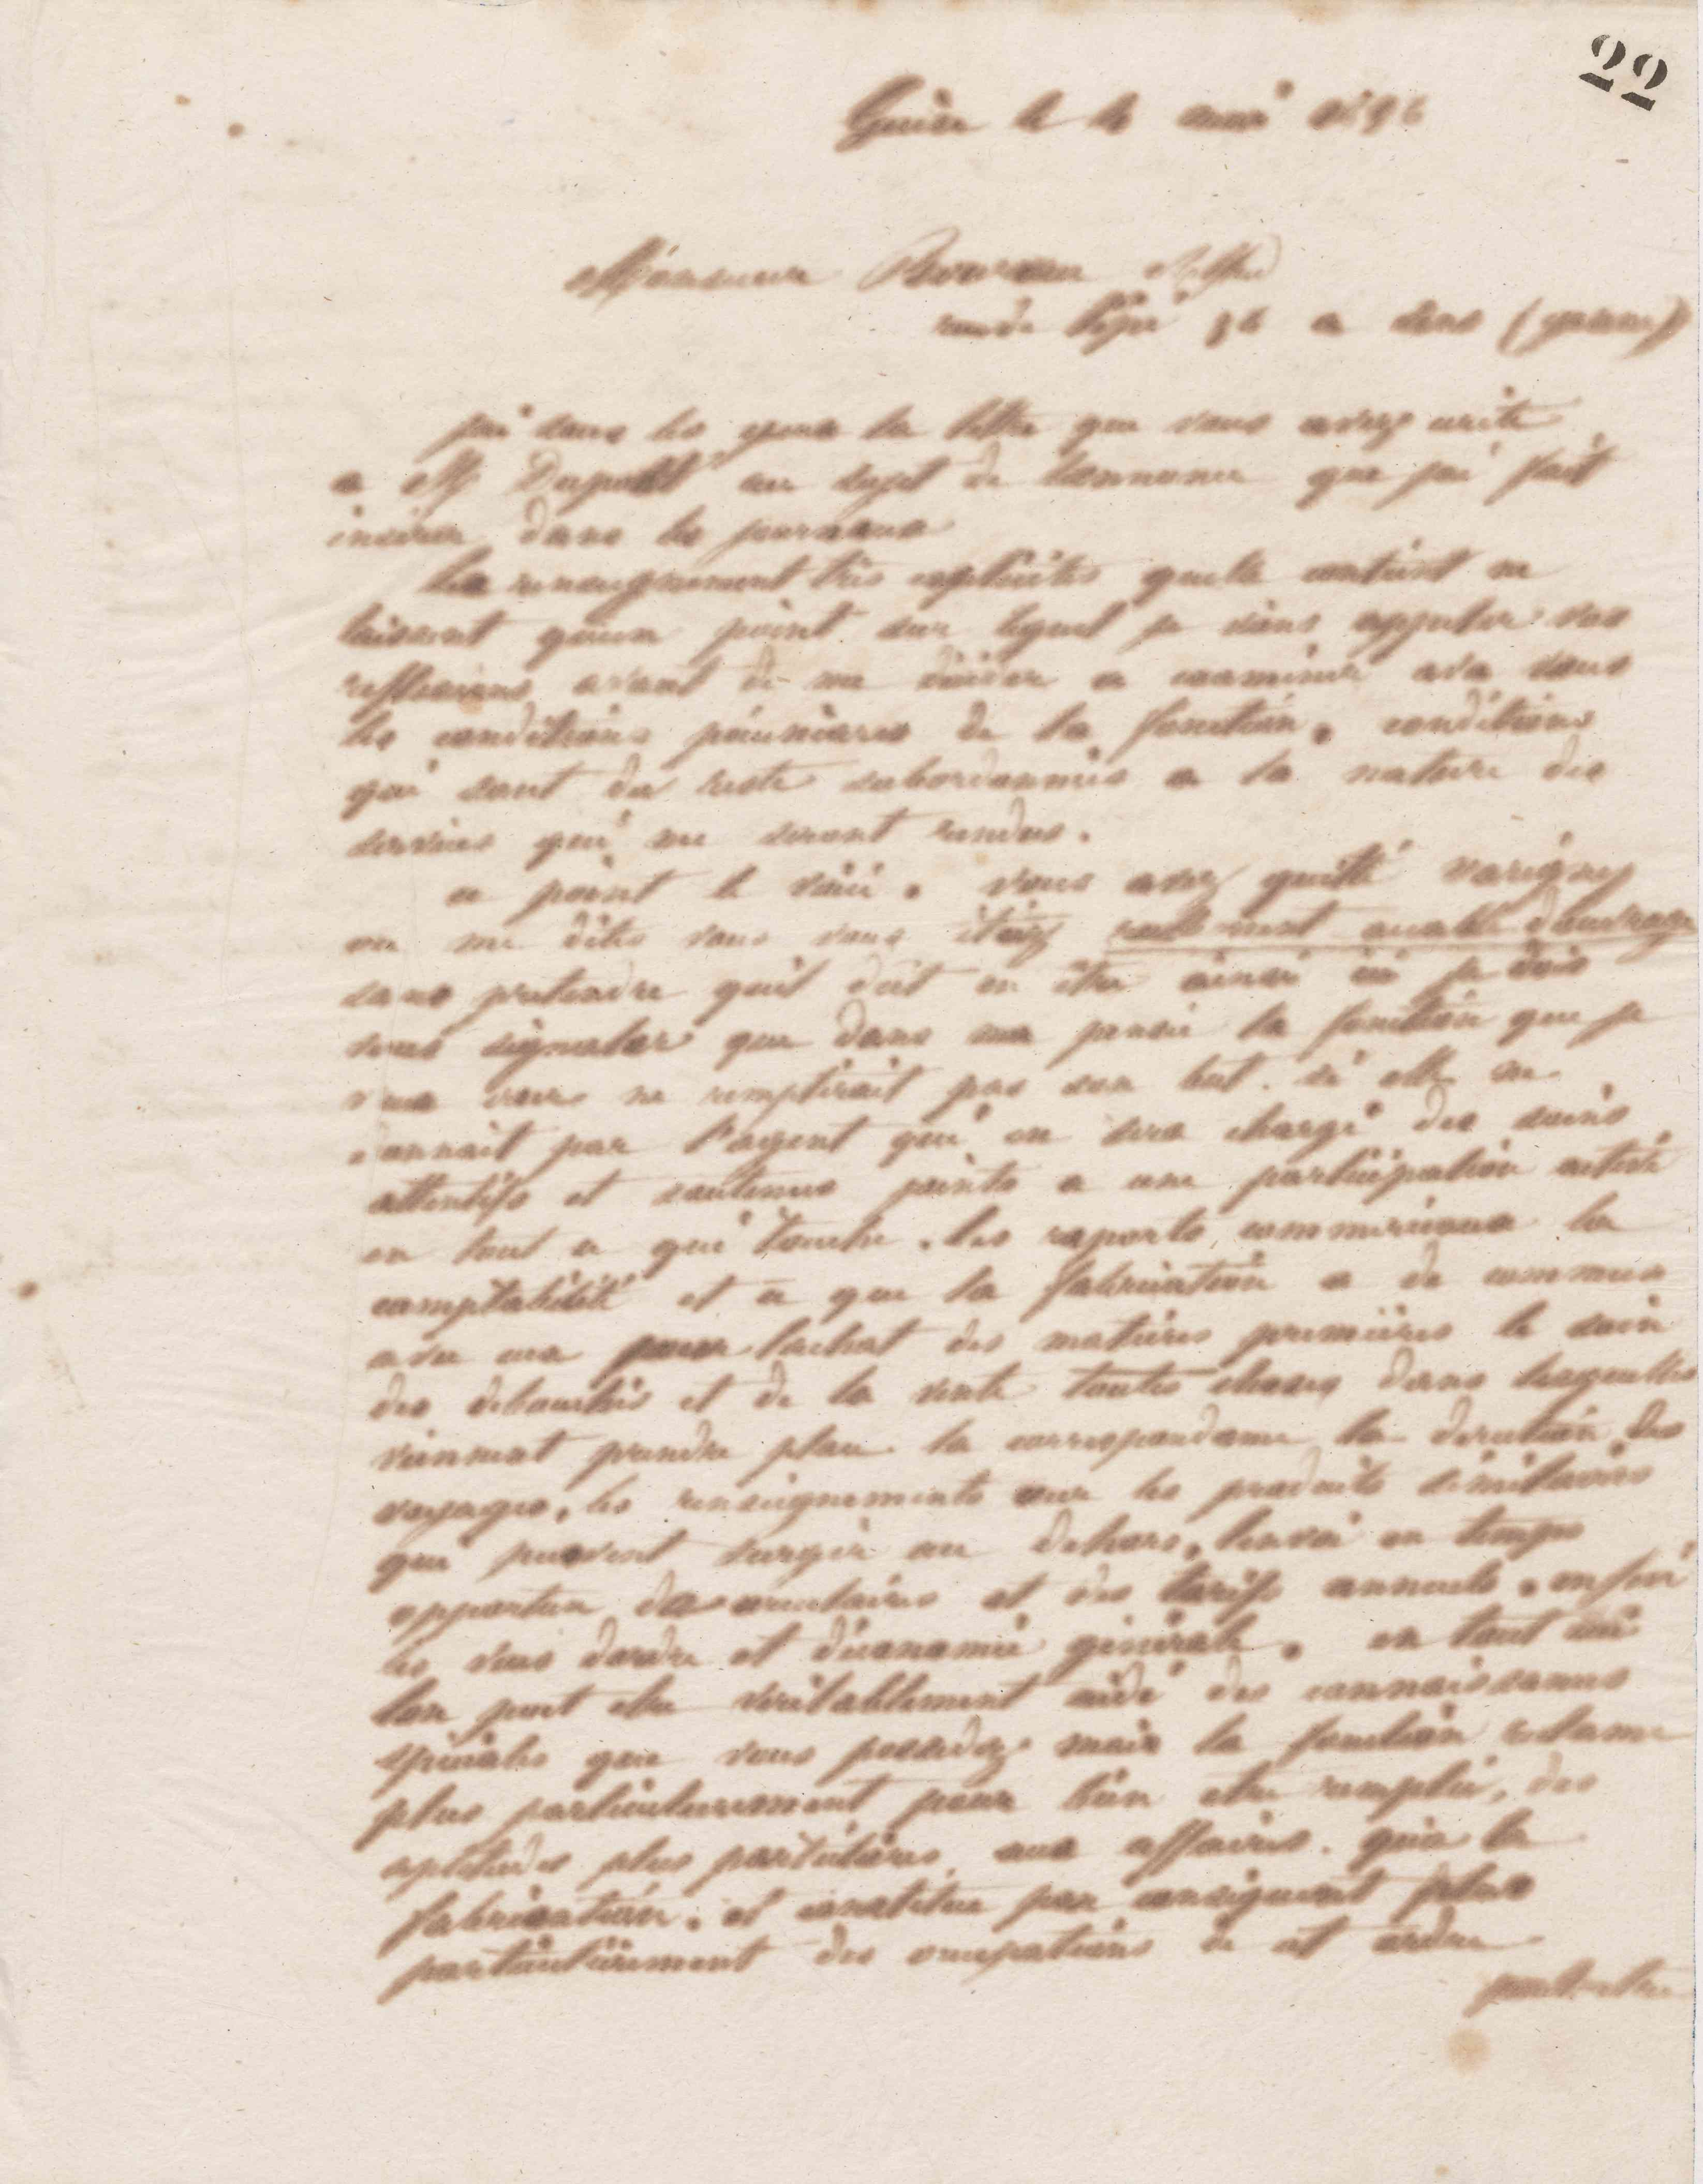 22
Guise le 4 mai 1896
Monsieur
rue de 36 a Sens (yonne)
j'ai sous les yeux la lettre que vous avez écrite
a M Dupont au sujet de l'annonce que j'ai fait
insérer dans les journaux
les renseignement très explicites quelle contient ne
laissent qu'un point sur lequel je dois appeler vos
reflexions avant de me décider a examiner avec vous
les conditions pécuniaires de la fonction, conditions
qui sont du reste subordonnées a la nature des
services qui me seront rendus.
ce point le voici. vous avez quitté
ou me dites vous vous étiez
sans pretendre qu'il doit en être ainsi ici je dois
vous signaler que dans ma pensée la fonction que je
ne remplirait pas son but si elle ne
par l'agent qui en sera chargé des soins
attentifs et soutenus joints a une participation active
en tout ce qui touche les raports commerciaux la
comptabilité et ce que la fabrication a de commun
avec eux pour l'achat des matières premières le soin
des débouchés et de la vente toutes choses dans lesquelles
viennent prendre place la correspondance la direction des
voyages, les renseignements sur les produits similaires
qui peuvent surgir au dehors, l'envoi en temps
opportun des circulaires et des tarifs annuels, enfin
les vues d'ordre et d'économie générale. en tout cela
l'on peut etre véritablement aidé des connaissances
spéciales que vous possedez mais la fonction reclame
plus particulierement pour bien etre remplie, des
aptitudes plus particulières aux affaires qu'a la
fabrication. et constitue par consequent plus
particulièrement des occupations de cet ordre
peut-etre